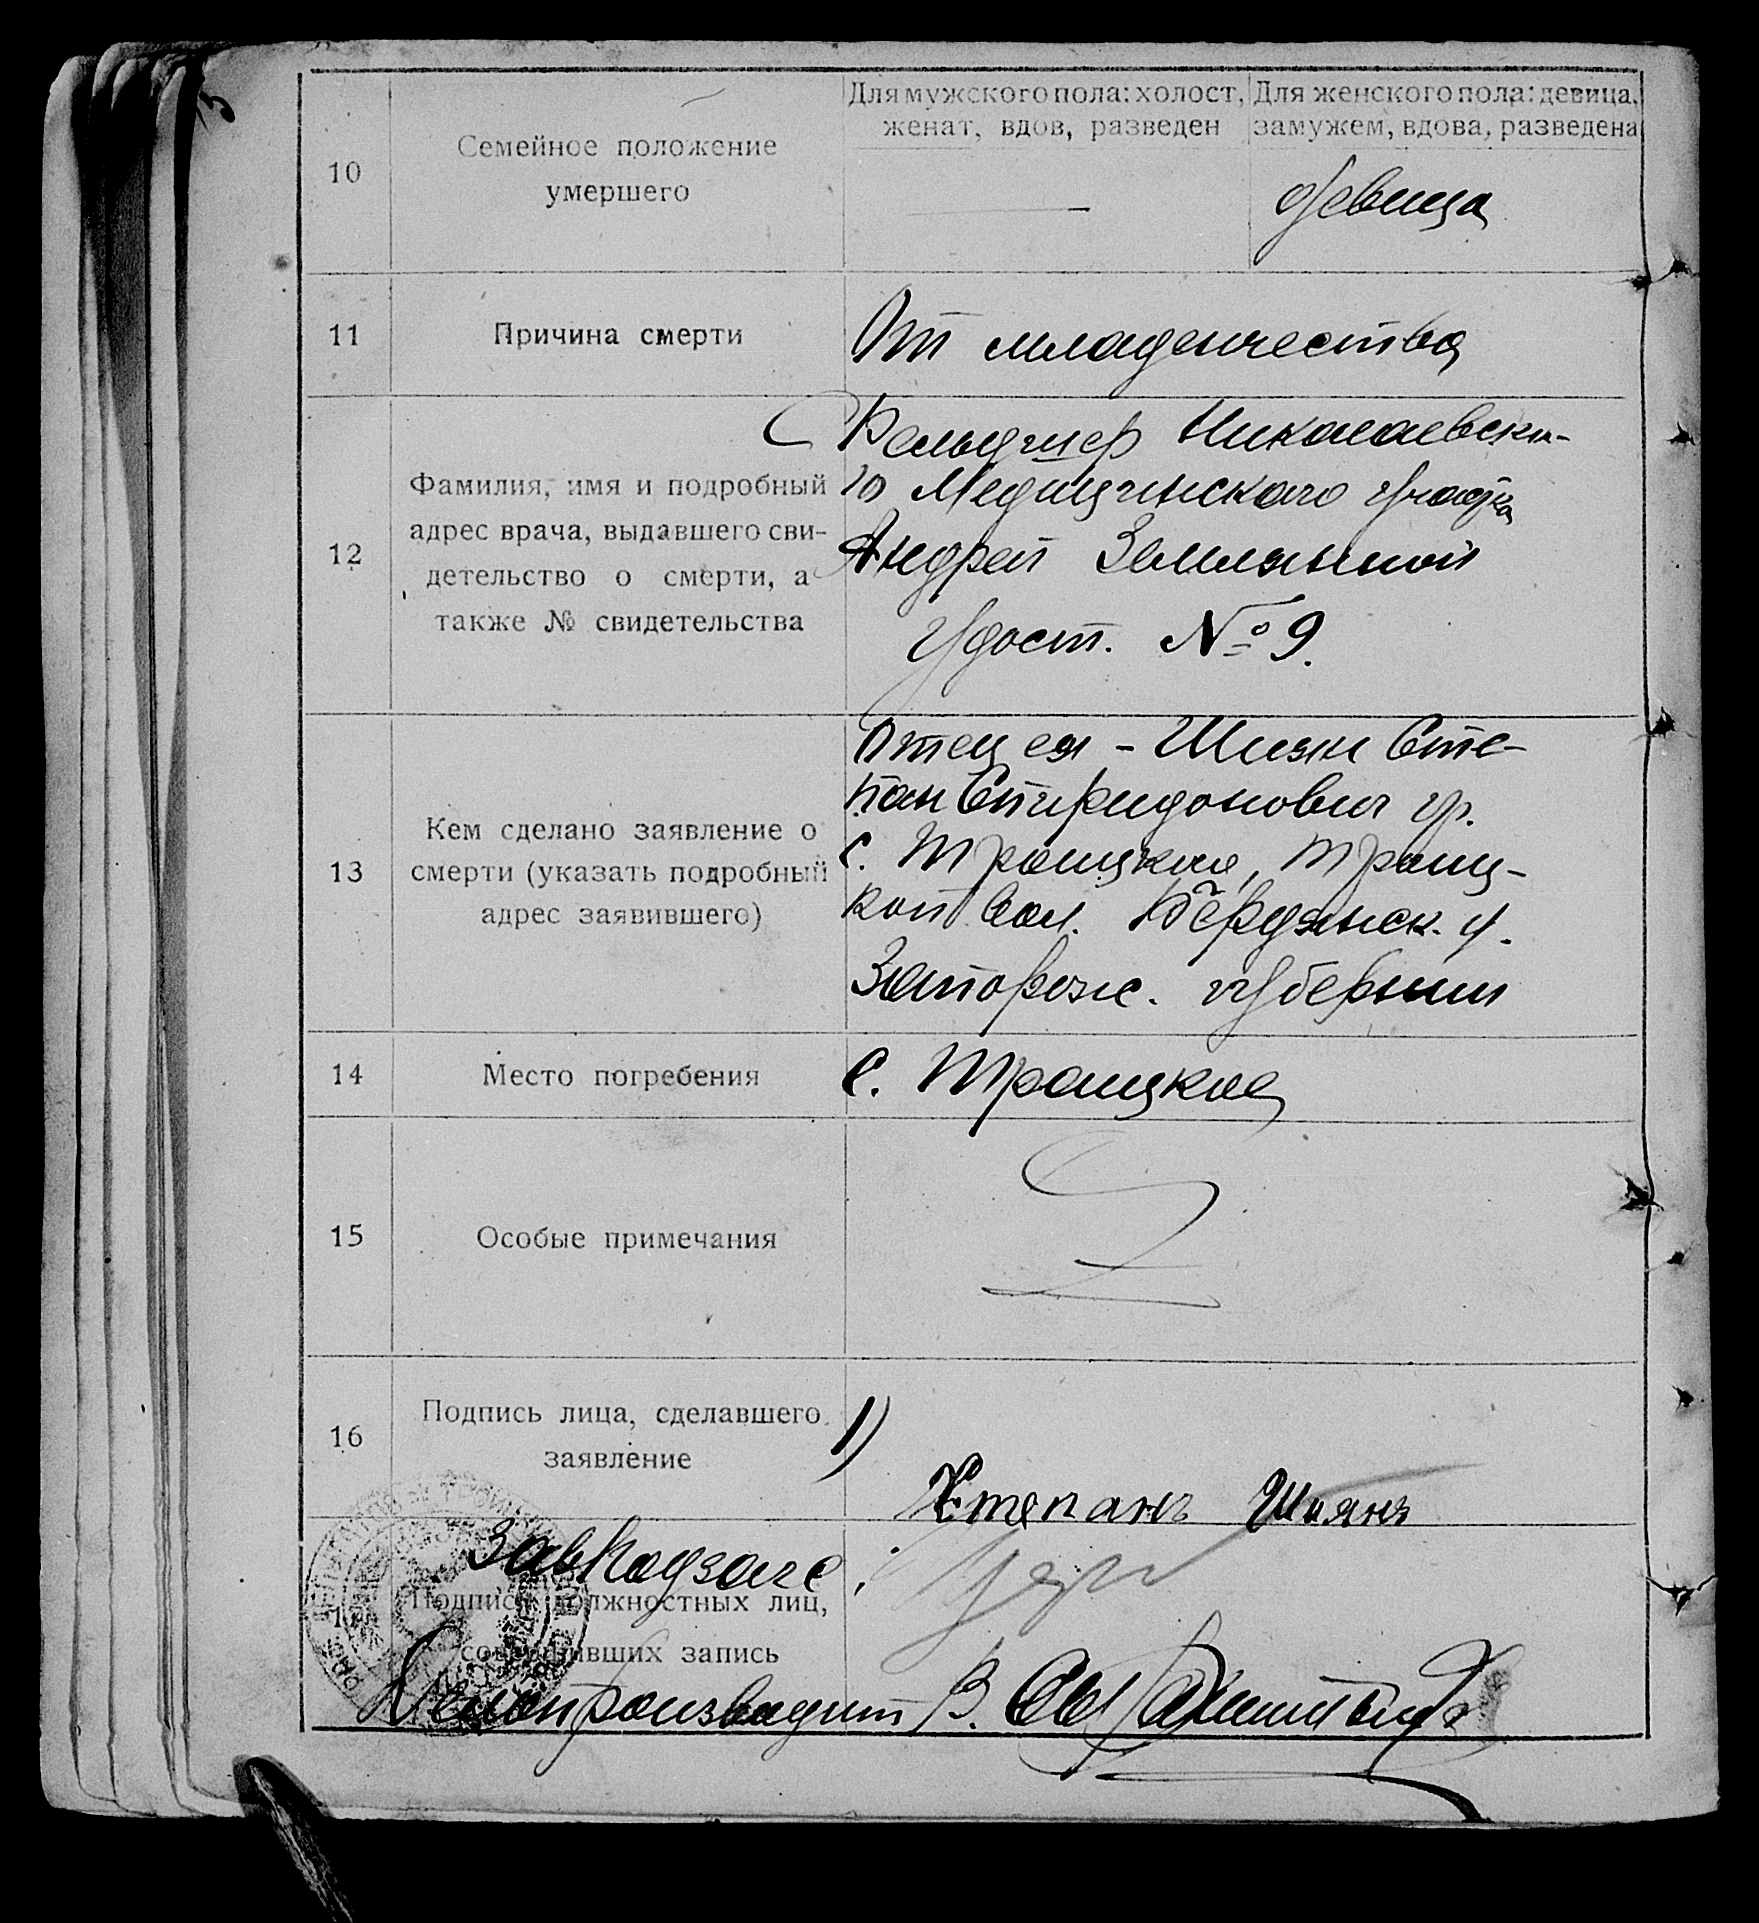 Для мужского пола: холост,
женат, вдов, разведен
Для женского пола: девица,
замужем, вдова, разведена
10
Семейное положение
умершего
девица
11
Причина смерти
От младенчества
12
Фамилия, имя и подробный
адрес врача, выдавшего сви-
детельство о смерти, а
также № свидетельства
Фельдшер Николаевско-
го Медицинского участка
Андрей Земляной
Удост. № 9.
13
Кем сделано заявление о
смерти (указать подробный
адрес заявившего)
Отец ея - Шиян Сте-
пан Спиридонович гр.
с. Троицкое, Троиц-
кой вол. Бердянск. у.
Запорож. губернии
14
Место погребения
с. Троицкое
15
Особые примечания
16
Подпись лица, сделавшего
заявление
1)
Степанъ Шиянъ
17
Завподзагс
Подписи должностных лиц,
совершивших запись
Делопроизводит В.